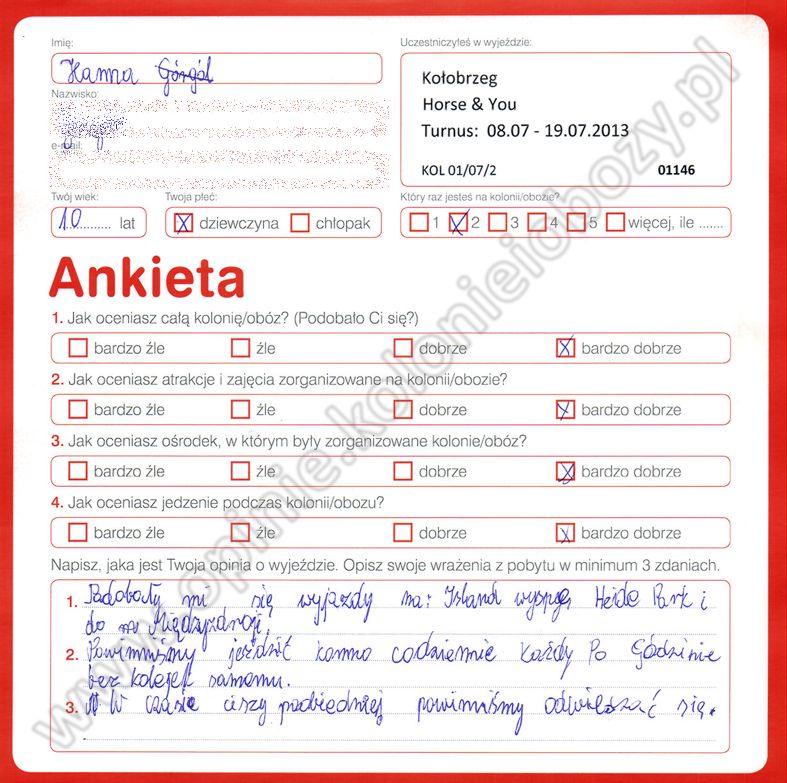 Imię:
Hanna Górgól
Uczestniczyłeś w wyjeździe:
Kołobrzeg
Horse & You
Turnus: 08.07 - 19.07.2013
KOL 01/07/2 01146
Nazwisko:
e-mail:
Twój wiek:
10 lat
Twoja płeć:
dziewczyna chłopak
Który raz jesteś na kolonii/obozie?
1 2 3 4 5 więcej, ile .......
Ankieta
1. Jak oceniasz całą kolonię/obóz? (Podobało Ci się?)
bardzo źle źle dobrze bardzo dobrze
2. Jak oceniasz atrakcje i zajęcia zorganizowane na kolonii/obozie?
bardzo źle źle dobrze bardzo dobrze
3. Jak oceniasz ośrodek, w którym były zorganizowane kolonie/obóz?
bardzo źle źle dobrze bardzo dobrze
4. Jak oceniasz jedzenie podczas kolonii/obozu?
bardzo źle źle dobrze bardzo dobrze
Napisz, jaka jest Twoja opinia o wyjeździe. Opisz swoje wrażenia z pobytu w minimum 3 zdaniach.
1. Podobały mi się wyjazdy na: Island wyspę, Heide Park i
do Międzyzdroji,
2. Powinniśmy jeździć konno codziennie każdy po godzinie
bez kolejek samemu.
3. W czasie ciszy poobiedniej powinniśmy odwiedzać się.
www.opinie.kolonieiobozy.pl